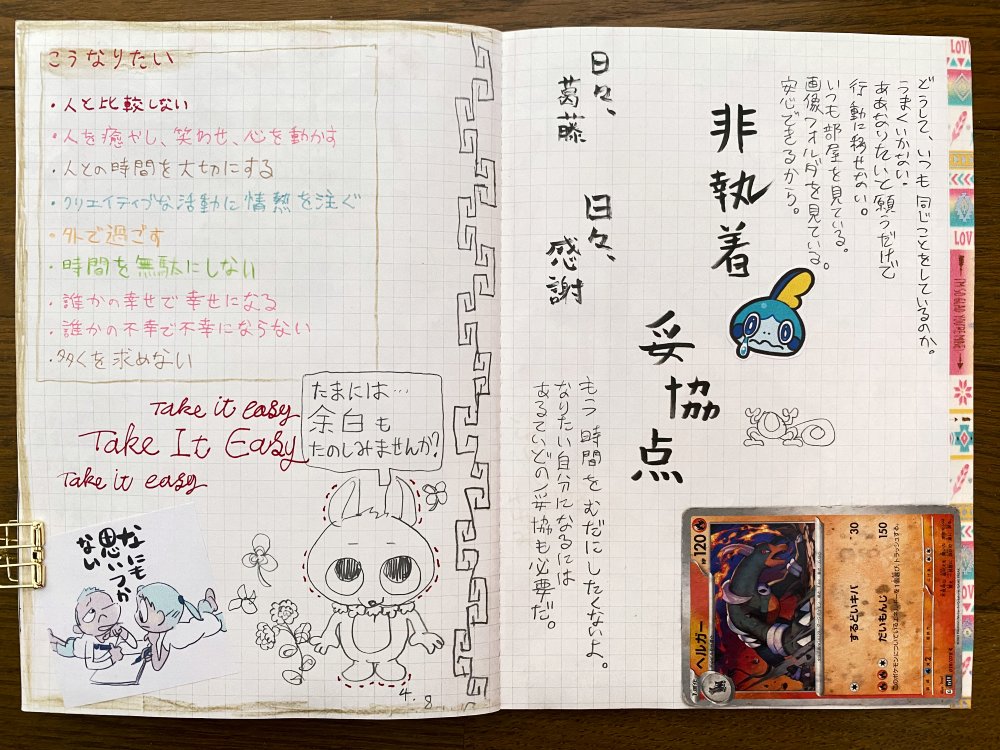 こうなりたい
・人と比較しない
・人を癒やし、笑わせ、心を動かす
・人との時間を大切にする
・クリエイティブな活動に情熱を注ぐ
・外で過ごす
・時間を無駄にしない
・誰かの幸せで幸せになる
・誰かの不幸で不幸にならない
・多くを求めない
Take it easy
Take It Easy
Take it easy
たまには…
余白も
たのしみませんか?
なにも
思いつか
ない
4.8
どうして、いつも同じことをしているのか。
うまくいかない。
ああなりたいと願うだけで
行動に移せない。
いつも部屋を見ている。
画像フォルダを見ている。
安心できるから。
非執着
妥協点
日々、
葛藤
日々、
感謝
もう時間をむだにしたくないよ。
なりたい自分になるには
あるていどの妥協も必要だ。
LOVE
LOV
I'M SO GLAD YOU'RE MINE
LOV
ヘルガー
HP 120
するどいキバ
30
だいもんじ
150